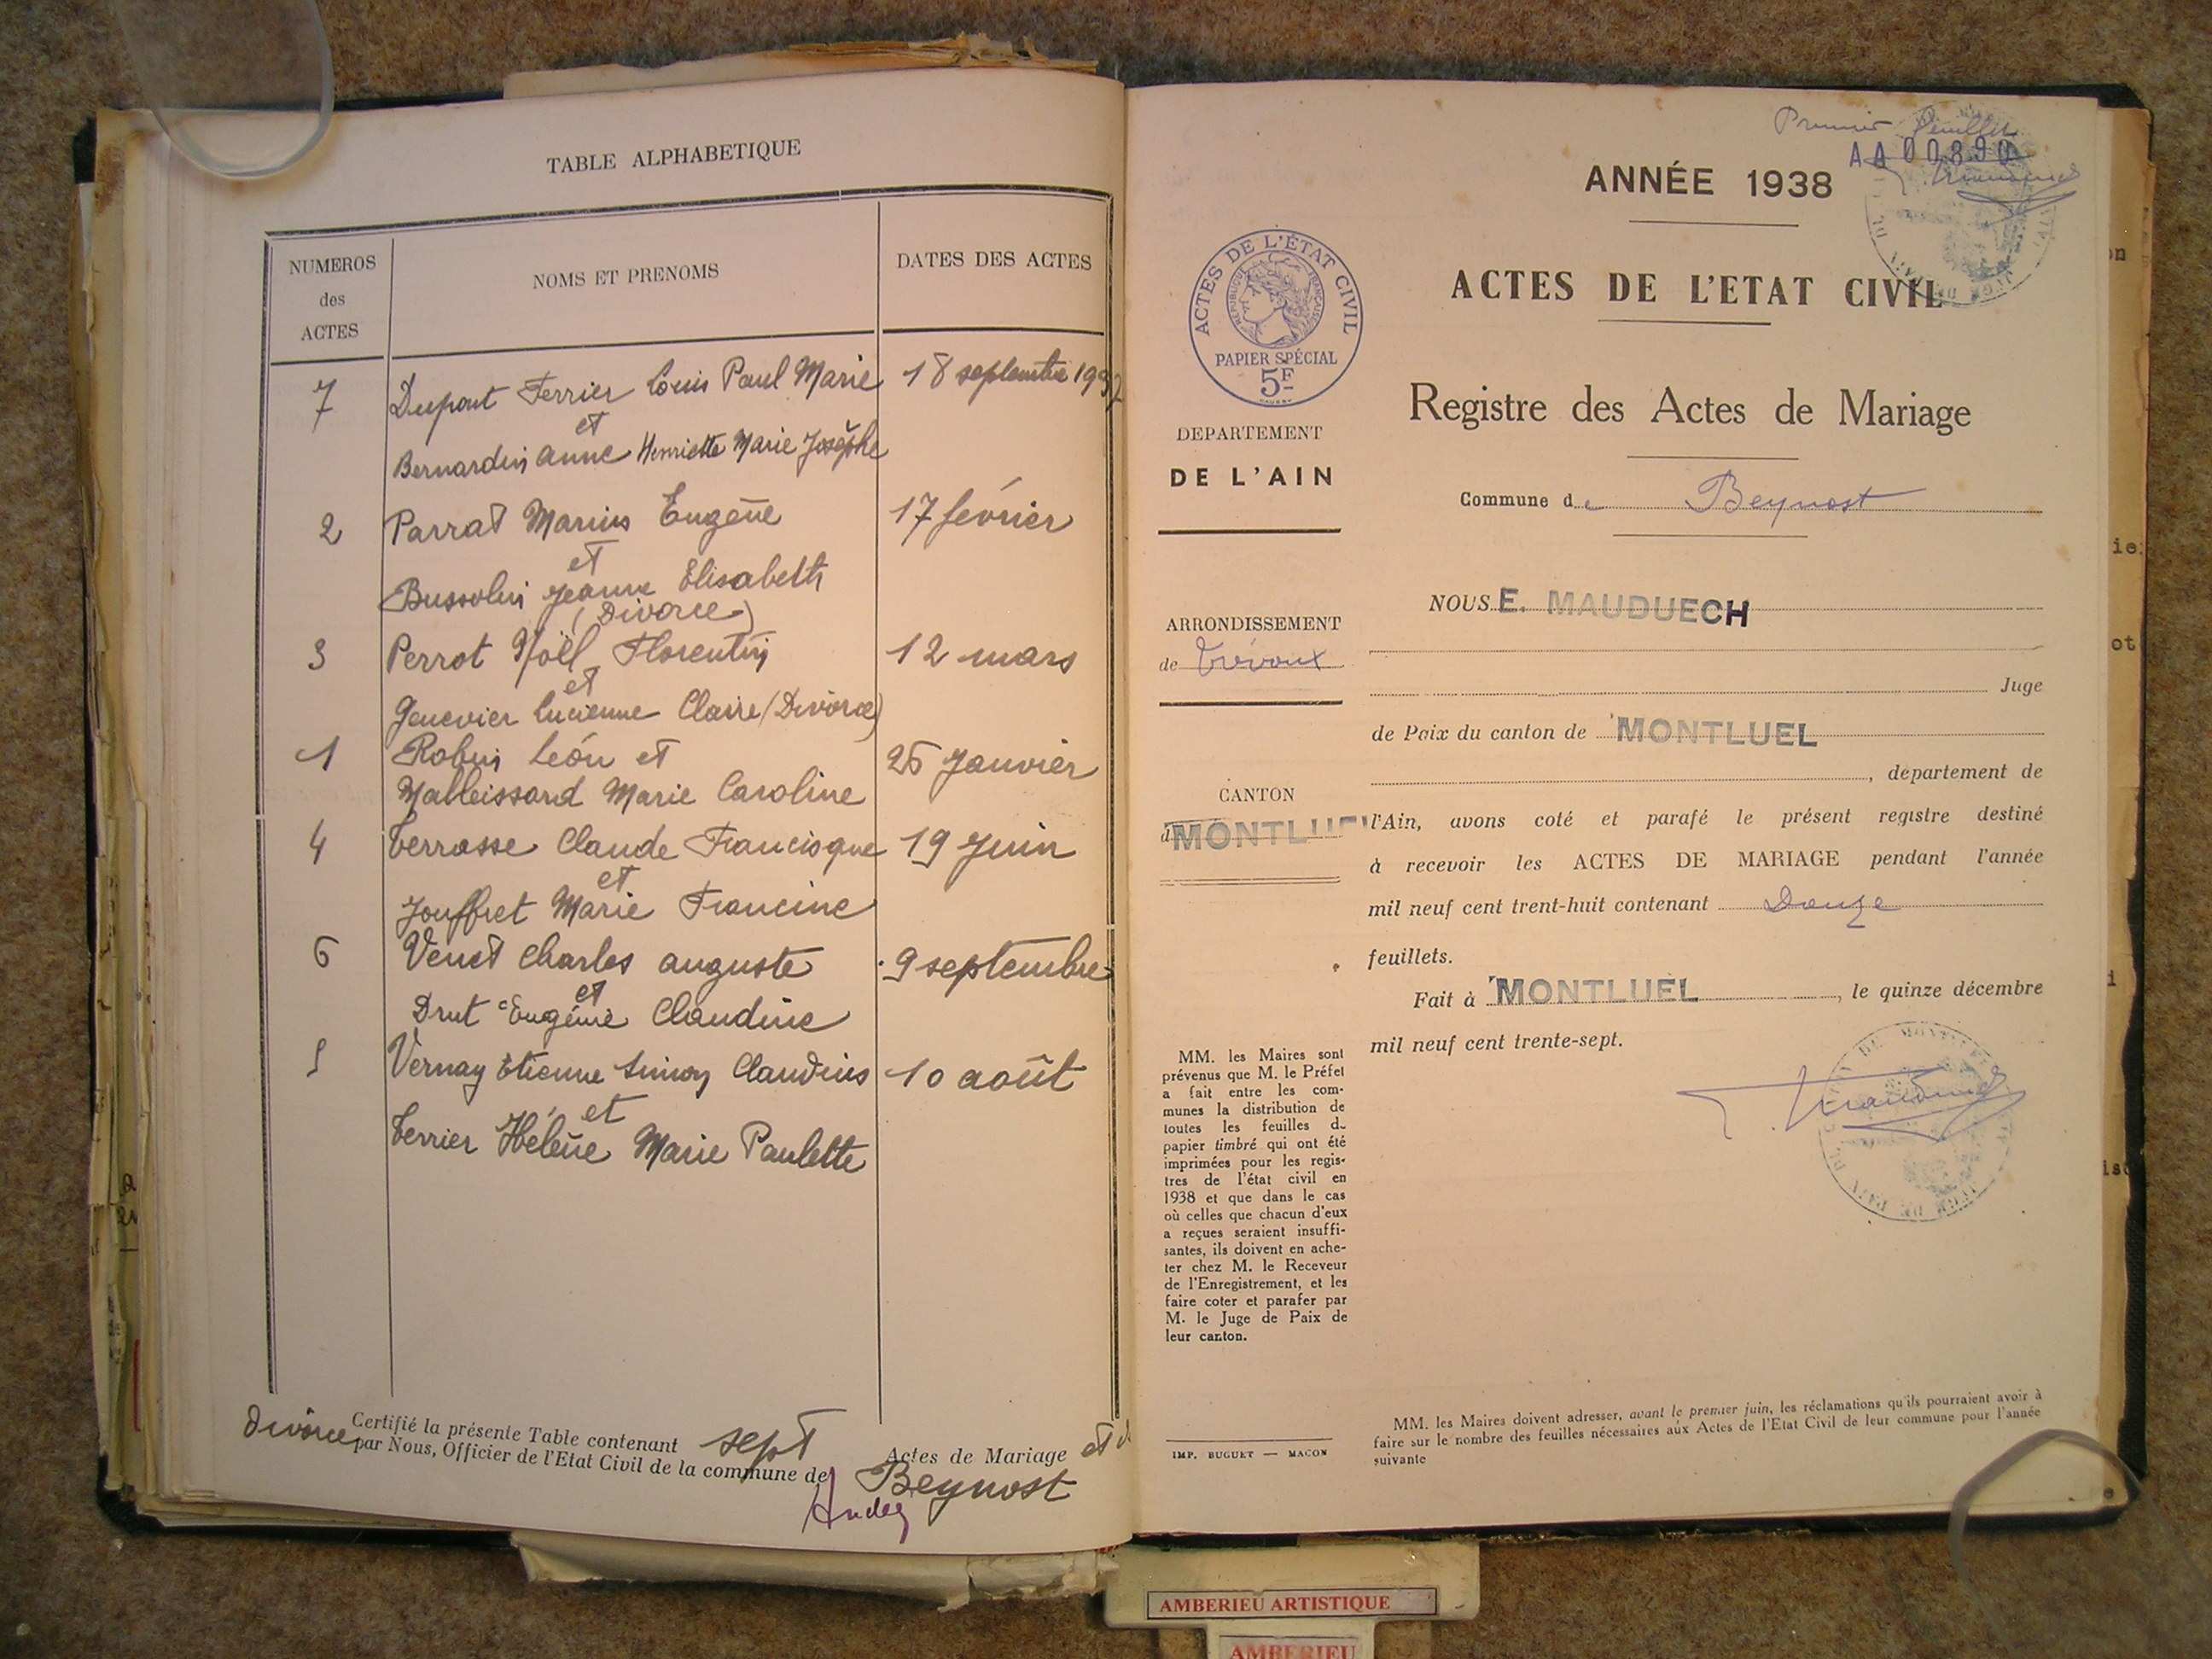 TABLE ALPHABETIQUE
NUMEROS
des
ACTES
NOMS ET PRENOMS
DATES DES ACTES
7 Dupont Ferrier Louis Paul Marie 18 septembre 1937
et
Bernardin Anne Henriette Marie Josèphe
2 Parrat Marius Eugène 17 février
et
Bussolin Jeanne Elisabeth
(Divorce)
3 Perrot Noël Florentin 12 mars
et
Genevier Lucienne Claire (Divorce)
1 Robin Léon et 25 Janvier
Malleissard Marie Caroline
4 Terrasse Claude Francisque 19 Juin
et
Jouffret Marie Francine
6 Venet Charles Auguste 9 septembre
et
Drut Eugénie Claudine
5 Vernay Etienne Simon Claudius 10 août
et
Terrier Hélène Marie Paulette
Certifié la présente Table contenant sept Actes de Mariage et
divorce par Nous, Officier de l'Etat Civil de la commune de Beynost
Premier feuillet
AA00890
ANNÉE 1938
ACTES DE L'ETAT CIVIL
ACTES DE L'ÉTAT CIVIL
RÉPUBLIQUE FRANÇAISE
PAPIER SPÉCIAL
5F
Registre des Actes de Mariage
DEPARTEMENT
DE L'AIN
Commune de Beynost
ARRONDISSEMENT
de Trévoux
CANTON
d MONTLUEL
NOUS E. MAUDUECH
Juge
de Paix du canton de MONTLUEL
, département de
l'Ain, avons coté et parafé le présent registre destiné
à recevoir les ACTES DE MARIAGE pendant l'année
mil neuf cent trent-huit contenant Douze
feuillets.
Fait à MONTLUEL, le quinze décembre
mil neuf cent trente-sept.
MM. les Maires sont
prévenus que M. le Préfet
a fait entre les com-
munes la distribution de
toutes les feuilles de
papier timbré qui ont été
imprimées pour les regis-
tres de l'état civil en
1938 et que dans le cas
où celles que chacun d'eux
a reçues seraient insuffi-
santes, ils doivent en ache-
ter chez M. le Receveur
de l'Enregistrement, et les
faire coter et parafer par
M. le Juge de Paix de
leur canton.
IMP. BUGUET — MACON
MM. les Maires doivent adresser, avant le premier juin, les réclamations qu'ils pourraient avoir à
faire sur le nombre des feuilles nécessaires aux Actes de l'Etat Civil de leur commune pour l'année
suivante
AMBERIEU ARTISTIQUE
AMBERIEU